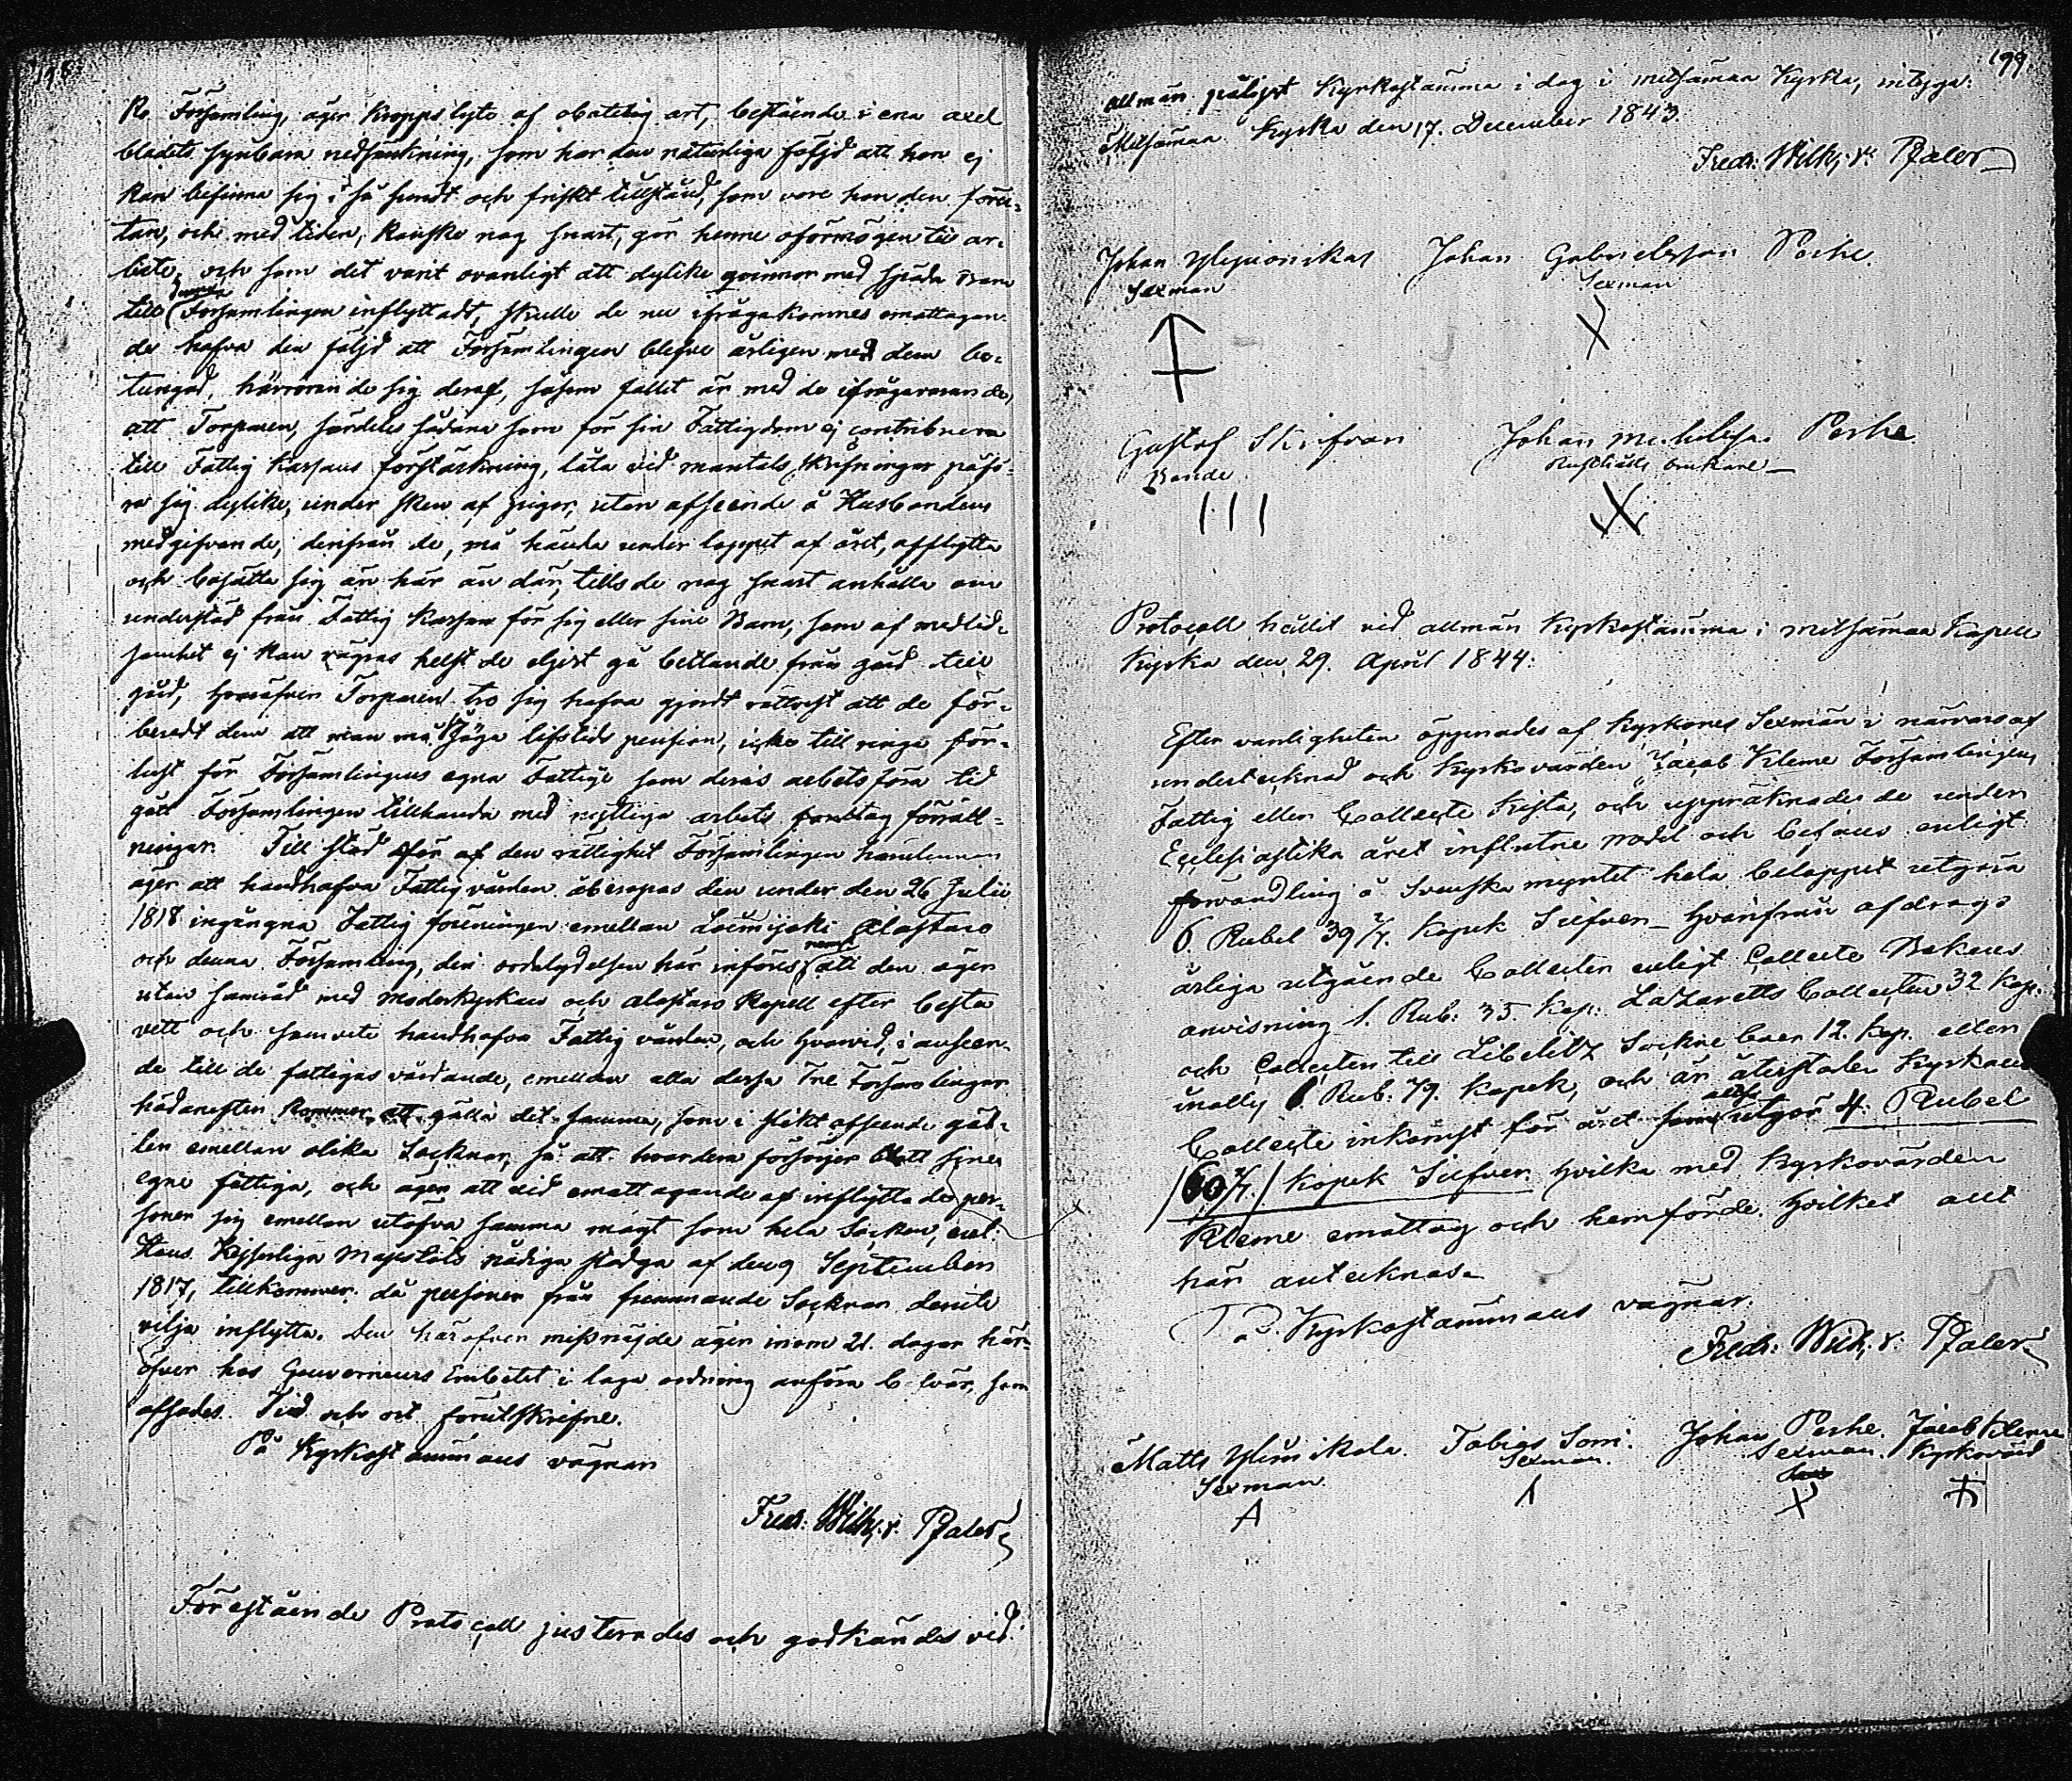 198
Ro Församling, äger kropps lyte af obotelig art, bestående i ena axel
bladets synbara nedsänkning, som har den naturliga följd att hon ej
kan befinna sig i så sundt och friskt tillstånd, som vore hon den föru-
tan, och med tiden, kanske nog snart, gör henne oförmögen till ar-
bete, och som det varit ovanligt att dylike qvinnor med späda Barn
till Församlingen inflyttadt, skulle de nu ifrågakomnes emottagan-
de hafva den följd att Församlingen blefve årligen med dem be-
tungad, härrörande sig deraf, såsom fallet är med de ifrågavarande,
att Torparen, särdeles sådana som för sin Fattigdom ej contribuera
till Fattig Kassans förstärkning, låta vid mantals skrifningar påfö-
ra sig dylike, under sken af pigor, utan afseende å Husbondens
medgifvande, derifrån de, må hända under loppet af året, afflytta
och bosätta sig än här än där, tills de nog snart anhålla om
understöd från Fattig Kassan för sig eller sine Barn, som af medlid-
samhet ej kan vägras helst de eljest gå bettlande från gård till
gård, hvaröfver Torparen tro sig hafva gjordt rättvist att de för-
beredt dem att man må säga lifstids pension, icke till ringa för-
lust för Församlingens egna Fattige som deras arbetsföra tid
gått Församlingen tillhanda med nyttiga arbets företag förrätt-
ningar. Till stöd för af den rättighet Församlingen
äger att handhafva Fattigvården åberopas den under den 26 Julii
1818 ingångna Fattig föreningen emellan Loimijoki Alastaro
och denna Församling, den ordalydelsen här införes nemt att den äger
utan samråd med Moderkyrkan och Alastaro Kapell efter bästa
vett och samvete handhafva Fattig vården, och hvarvid, i anseen-
de till de fattigas vårdande, emellan alla dessa Tre Församlingar
hädanefter kommer att gälla det samma, som i slikt afseende gäl-
ler emellan olika Socknar, så att hvardera försörjer blott sine
egne fattiga, och äger att vid emottagande af inflyttade per-
soner sig emellan utöfva samma magt som hela Socken, enl:
Hans Kejserliga Majestäts nådiga stadga af den 9 September
1817, tillkommer då personer från fremmande Socknar derute
vilja inflytta. Den häröfver missnöjde äger inom 21. dagar här-
öfver hos Gouverneurs Embetet i laga ordning anföra besvär, som
afsades. Tid och ort förutskrifne.
På Kyrkostämmans vägnar
Fredr: Wilh: v. Pfaler
Förestående Protocoll justerades och godkändes vid
199.
allmän pålyst Kyrkostämma i dag i Metsämaa Kyrka, intyga:
Metsämaa Kyrka den 17. December 1843.
Fredr: Wilh: v: Pfaler
Johan Johan Gabrielsson Perhe
Sexman Sexman
Gustaf Skrifvari Johan Michelsson Perhe
Bonde Rusthålls brukare
Protocoll hållit vid allmän Kyrkostämma i Metsämaa Kapell
Kyrka den 29. April 1844.
Efter vanligheten öppnades af Kyrkones Sexmän i närvaro af
undertecknad och Kyrkovärden Jacob Kleme Församlingens
Fattig eller Collecte Kista, och uppräknades de under
Ecclesiastika året influtne medel och befans enligt
förvandling å Svenska myntet hela beloppet utgöra
6. Rubel 39 2/7. Kopek Silfver — hvarifrån afdrags
årliga utgående Collecten enligt Collecte Bokens
anvisning 1. Rub: 35. Kop: Lazaretts Collecten 32 Kop:
och Collecten till Libelitz Sockne boer 12. Kop. eller
inalles 1. Rub: 79. Kopek, och är återstoden Kyrkans
Collecte inkomst för året som altså utgör 4. Rubel
/60 2/7./ Kopek Silfver hvilka med Kyrkovärden
Kleme emottog och hemförde. Hvilket allt
här antecknas.
På Kyrkostämmans vägnar.
Fredr: Wilh: v. Pfaler
Matts Ylimikola Tobias Somi. Johan Perhe. Jacob Kleme
Sexman. Sexman. Sexman. Kyrkovärd